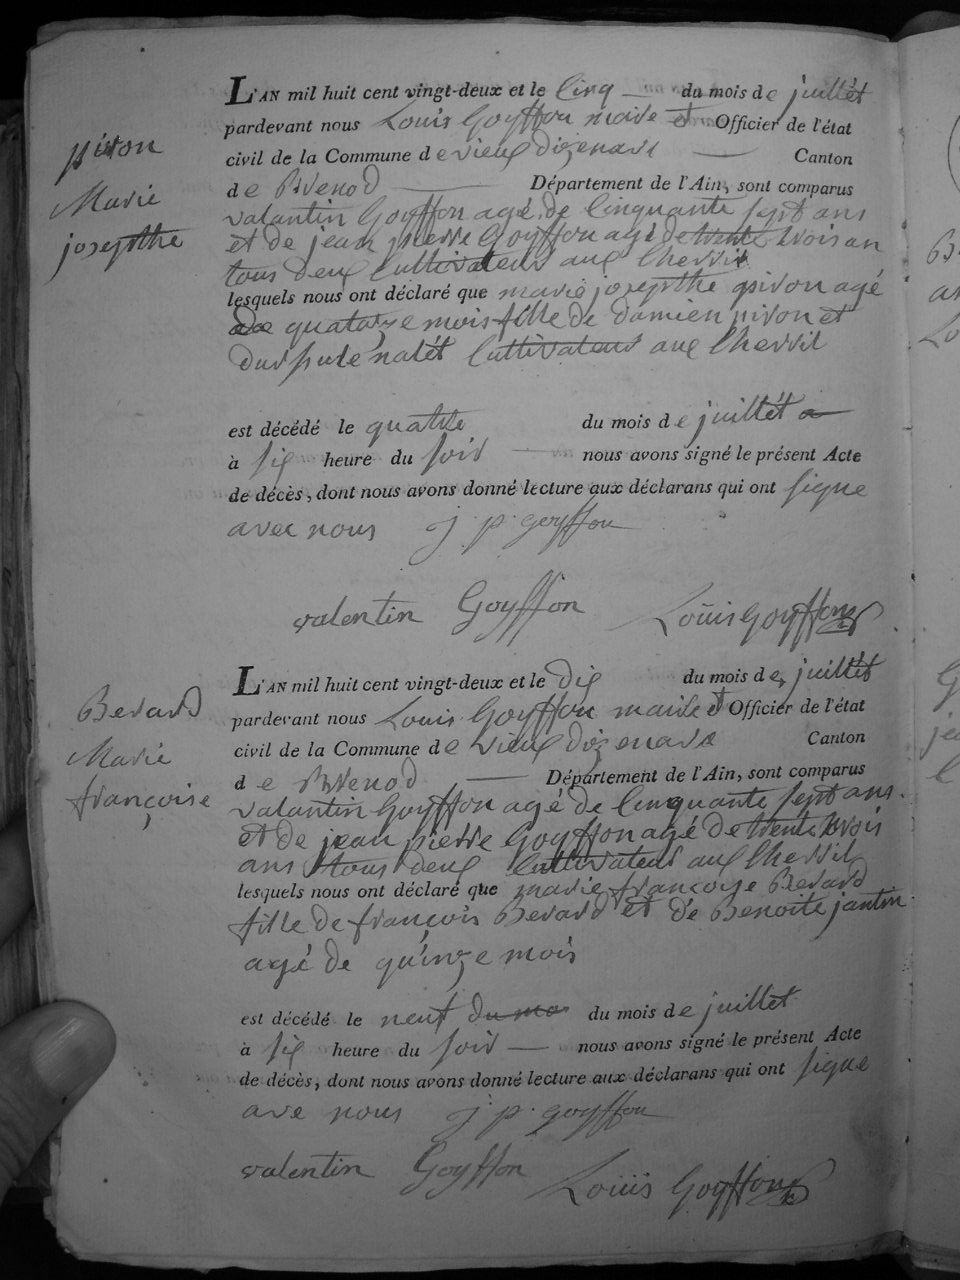 L'AN mil huit cent vingt-deux et le Cinq du mois de juillet
pardevant nous Louis Goyffon maire et Officier de l'état
civil de la Commune de vieux dizenave Canton
de Brenod Département de l'Ain, sont comparus
valantin Goyffon agé de Cinquante sept ans
et de jean pierre Goyffon agé de trente trois an
tous deux Cultivateurs aux
lesquels nous ont déclaré que marie josepthe piron agé
de quatorze mois fille de damien piron et
Cultivateurs aux
piron
Marie
josepthe
est décédé le quatre du mois de juillet a
à six heure du soir nous avons signé le présent Acte
de décès, dont nous avons donné lecture aux déclarans qui ont signe
avec nous j p goyffon
valentin Goyffon Louis Goyffon
L'AN mil huit cent vingt-deux et le dix du mois de juillet
pardevant nous Louis Goyffon maire et Officier de l'état
civil de la Commune de vieux dizenave Canton
de Brenod Département de l'Ain, sont comparus
valantin Goyffon agé de Cinquante sept ans
et de jean pierre Goyffon agé de trente trois
ans tous deux Cultivateurs aux
lesquels nous ont déclaré que marie françoise Berard
fille de françois Berard et de Benoite jantin
agé de quinze mois
Berard
Marie
françoise
est décédé le neuf du mo du mois de juillet
à six heure du soir nous avons signé le présent Acte
de décès, dont nous avons donné lecture aux déclarans qui ont signe
ave nous j p goyffon
valentin Goyffon Louis Goyffon